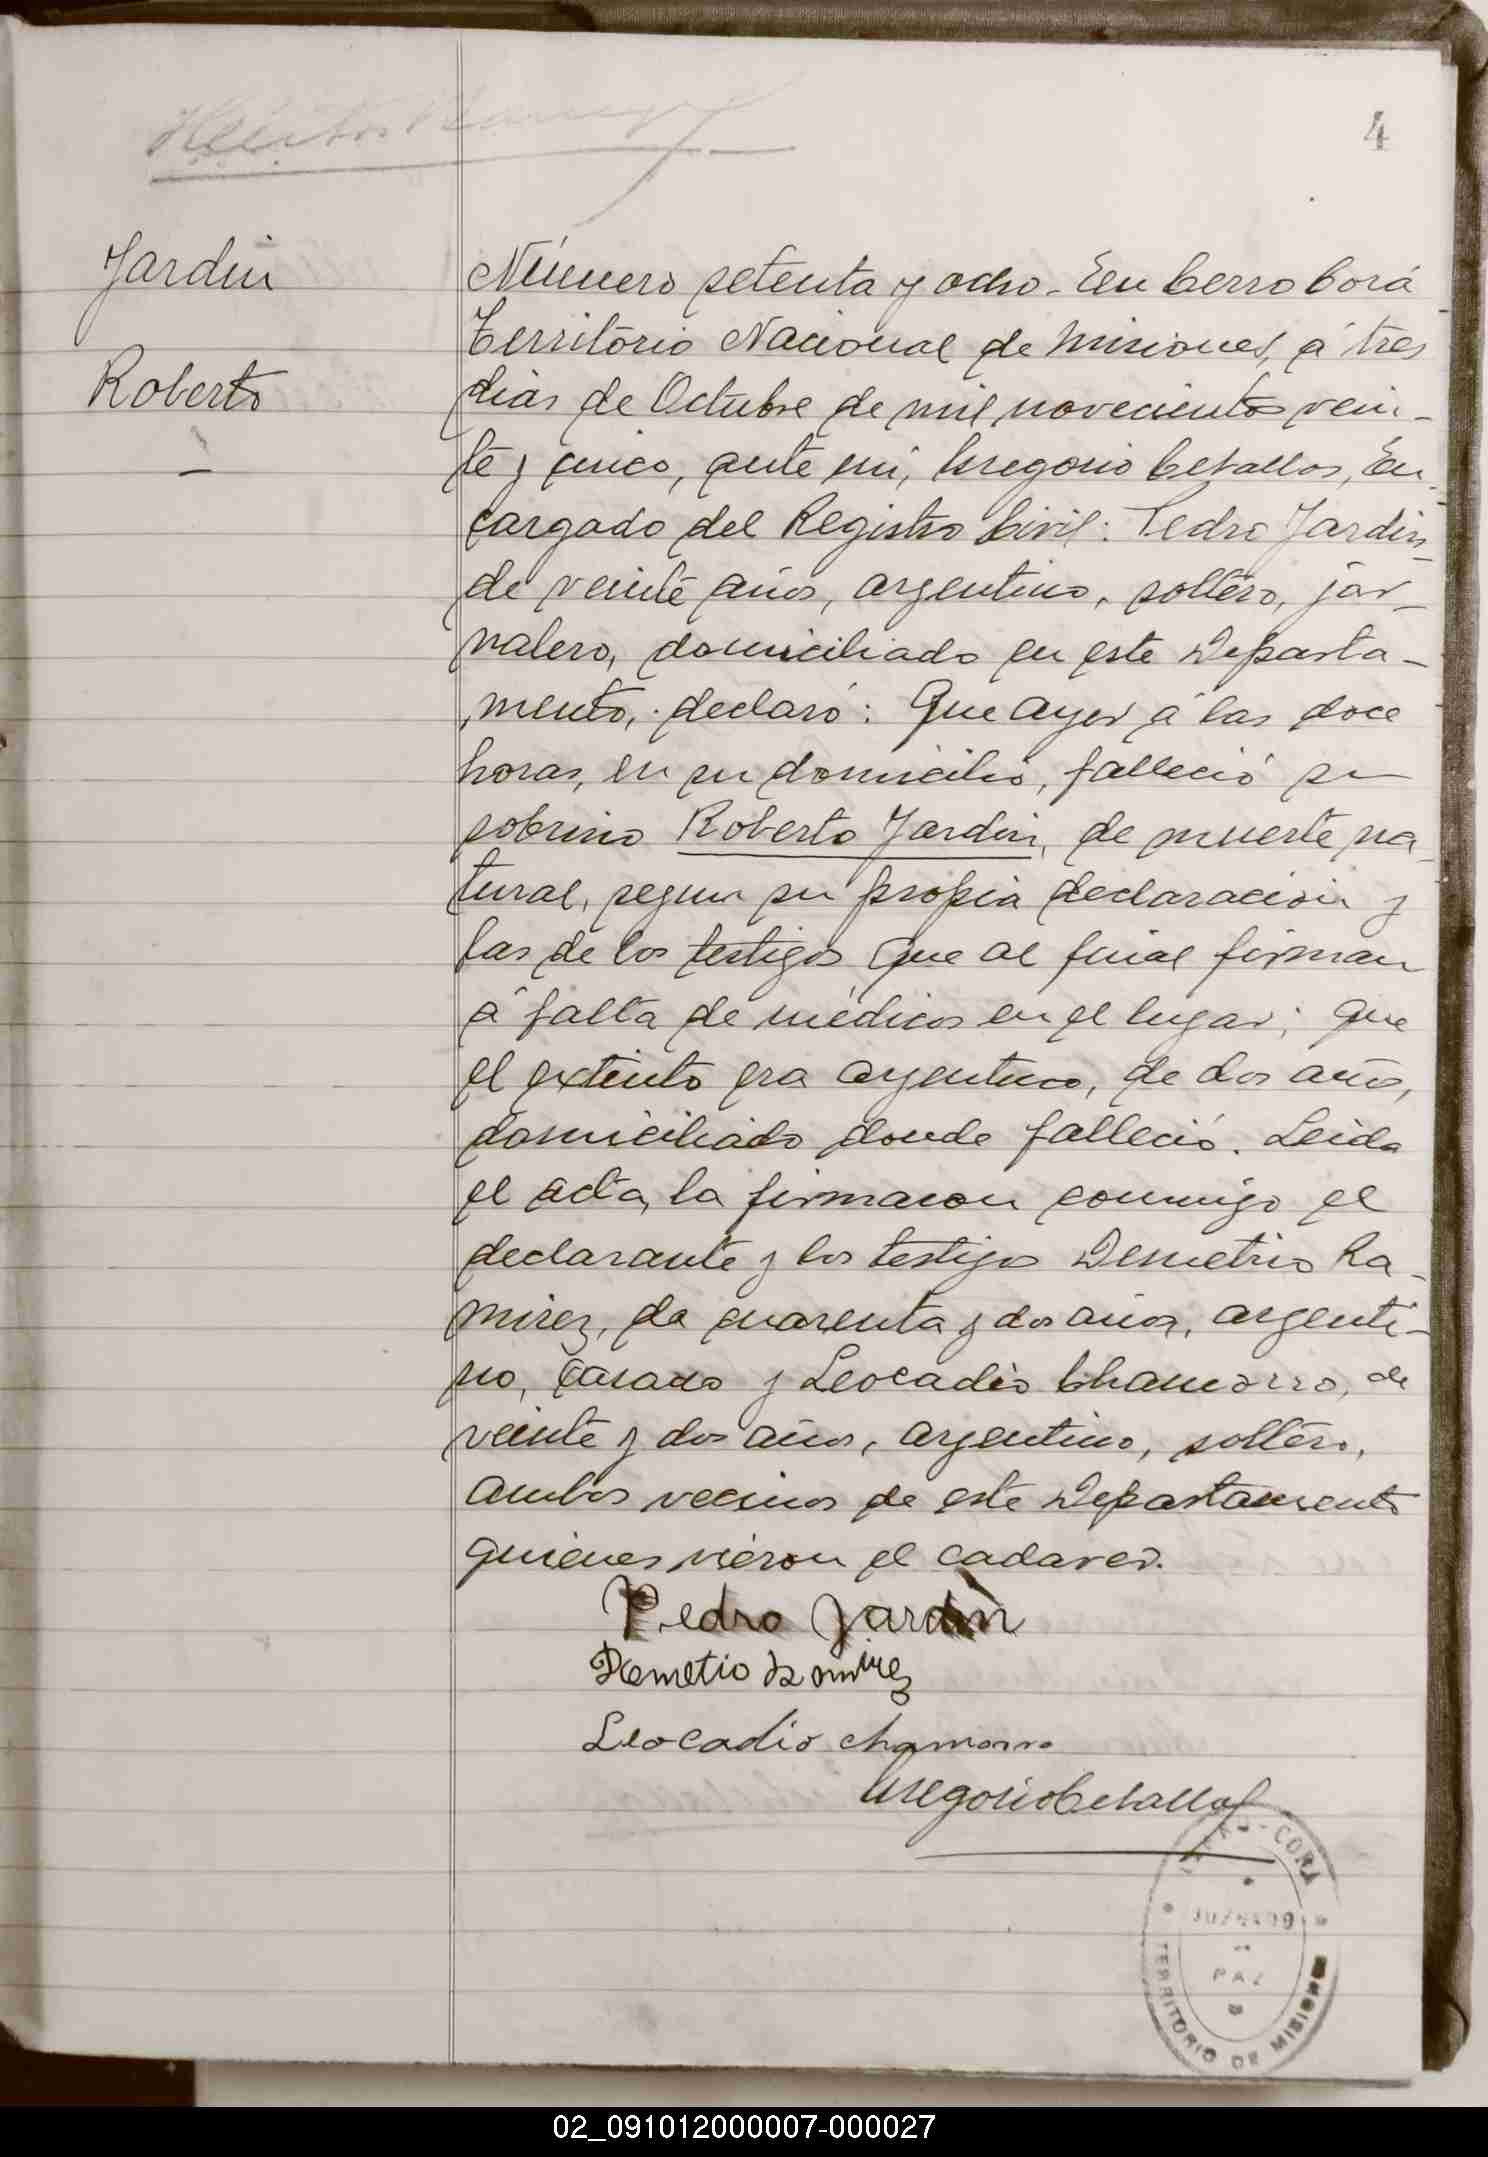 4
Jardin
Roberto
Número setenta y ocho. En Cerro Corá
Territorio Nacional de Misiones, á tres
dias de Octubre de mil novecientos vein-
te y cinco, ante mi, Gregorio Cevallos, En-
cargado del Registro Civil: Pedro Jardin
de veinte años, argentino, soltero, jor-
nalero, domiciliado en este Departa-
mento, declaró: Que ayer á las doce
horas, en su domicilio, falleció su
sobrino Roberto Jardin, de muerte na-
tural, segun su propia declaración y
las de los testigos que al final firman
á falta de médicos en el lugar; que
el extinto era argentino, de dos años,
domiciliado donde falleció. Leida
el acta, la firmaron conmigo el
declarante y los testigos Demetrio Ra-
mirez, de cuarenta y dos años, argenti-
no, casado y Leocadio Chamorro, de
veinte y dos años, argentino, soltero,
ambos vecinos de este Departamento
quienes vieron el cadaver.
Pedro Jardin
Demetio Ramirez
Leocadio chamorro
Gregorio Cevallos
CORA
JUZGADO
PAZ
TERRITORIO DE MISIONES
02_091012000007-000027